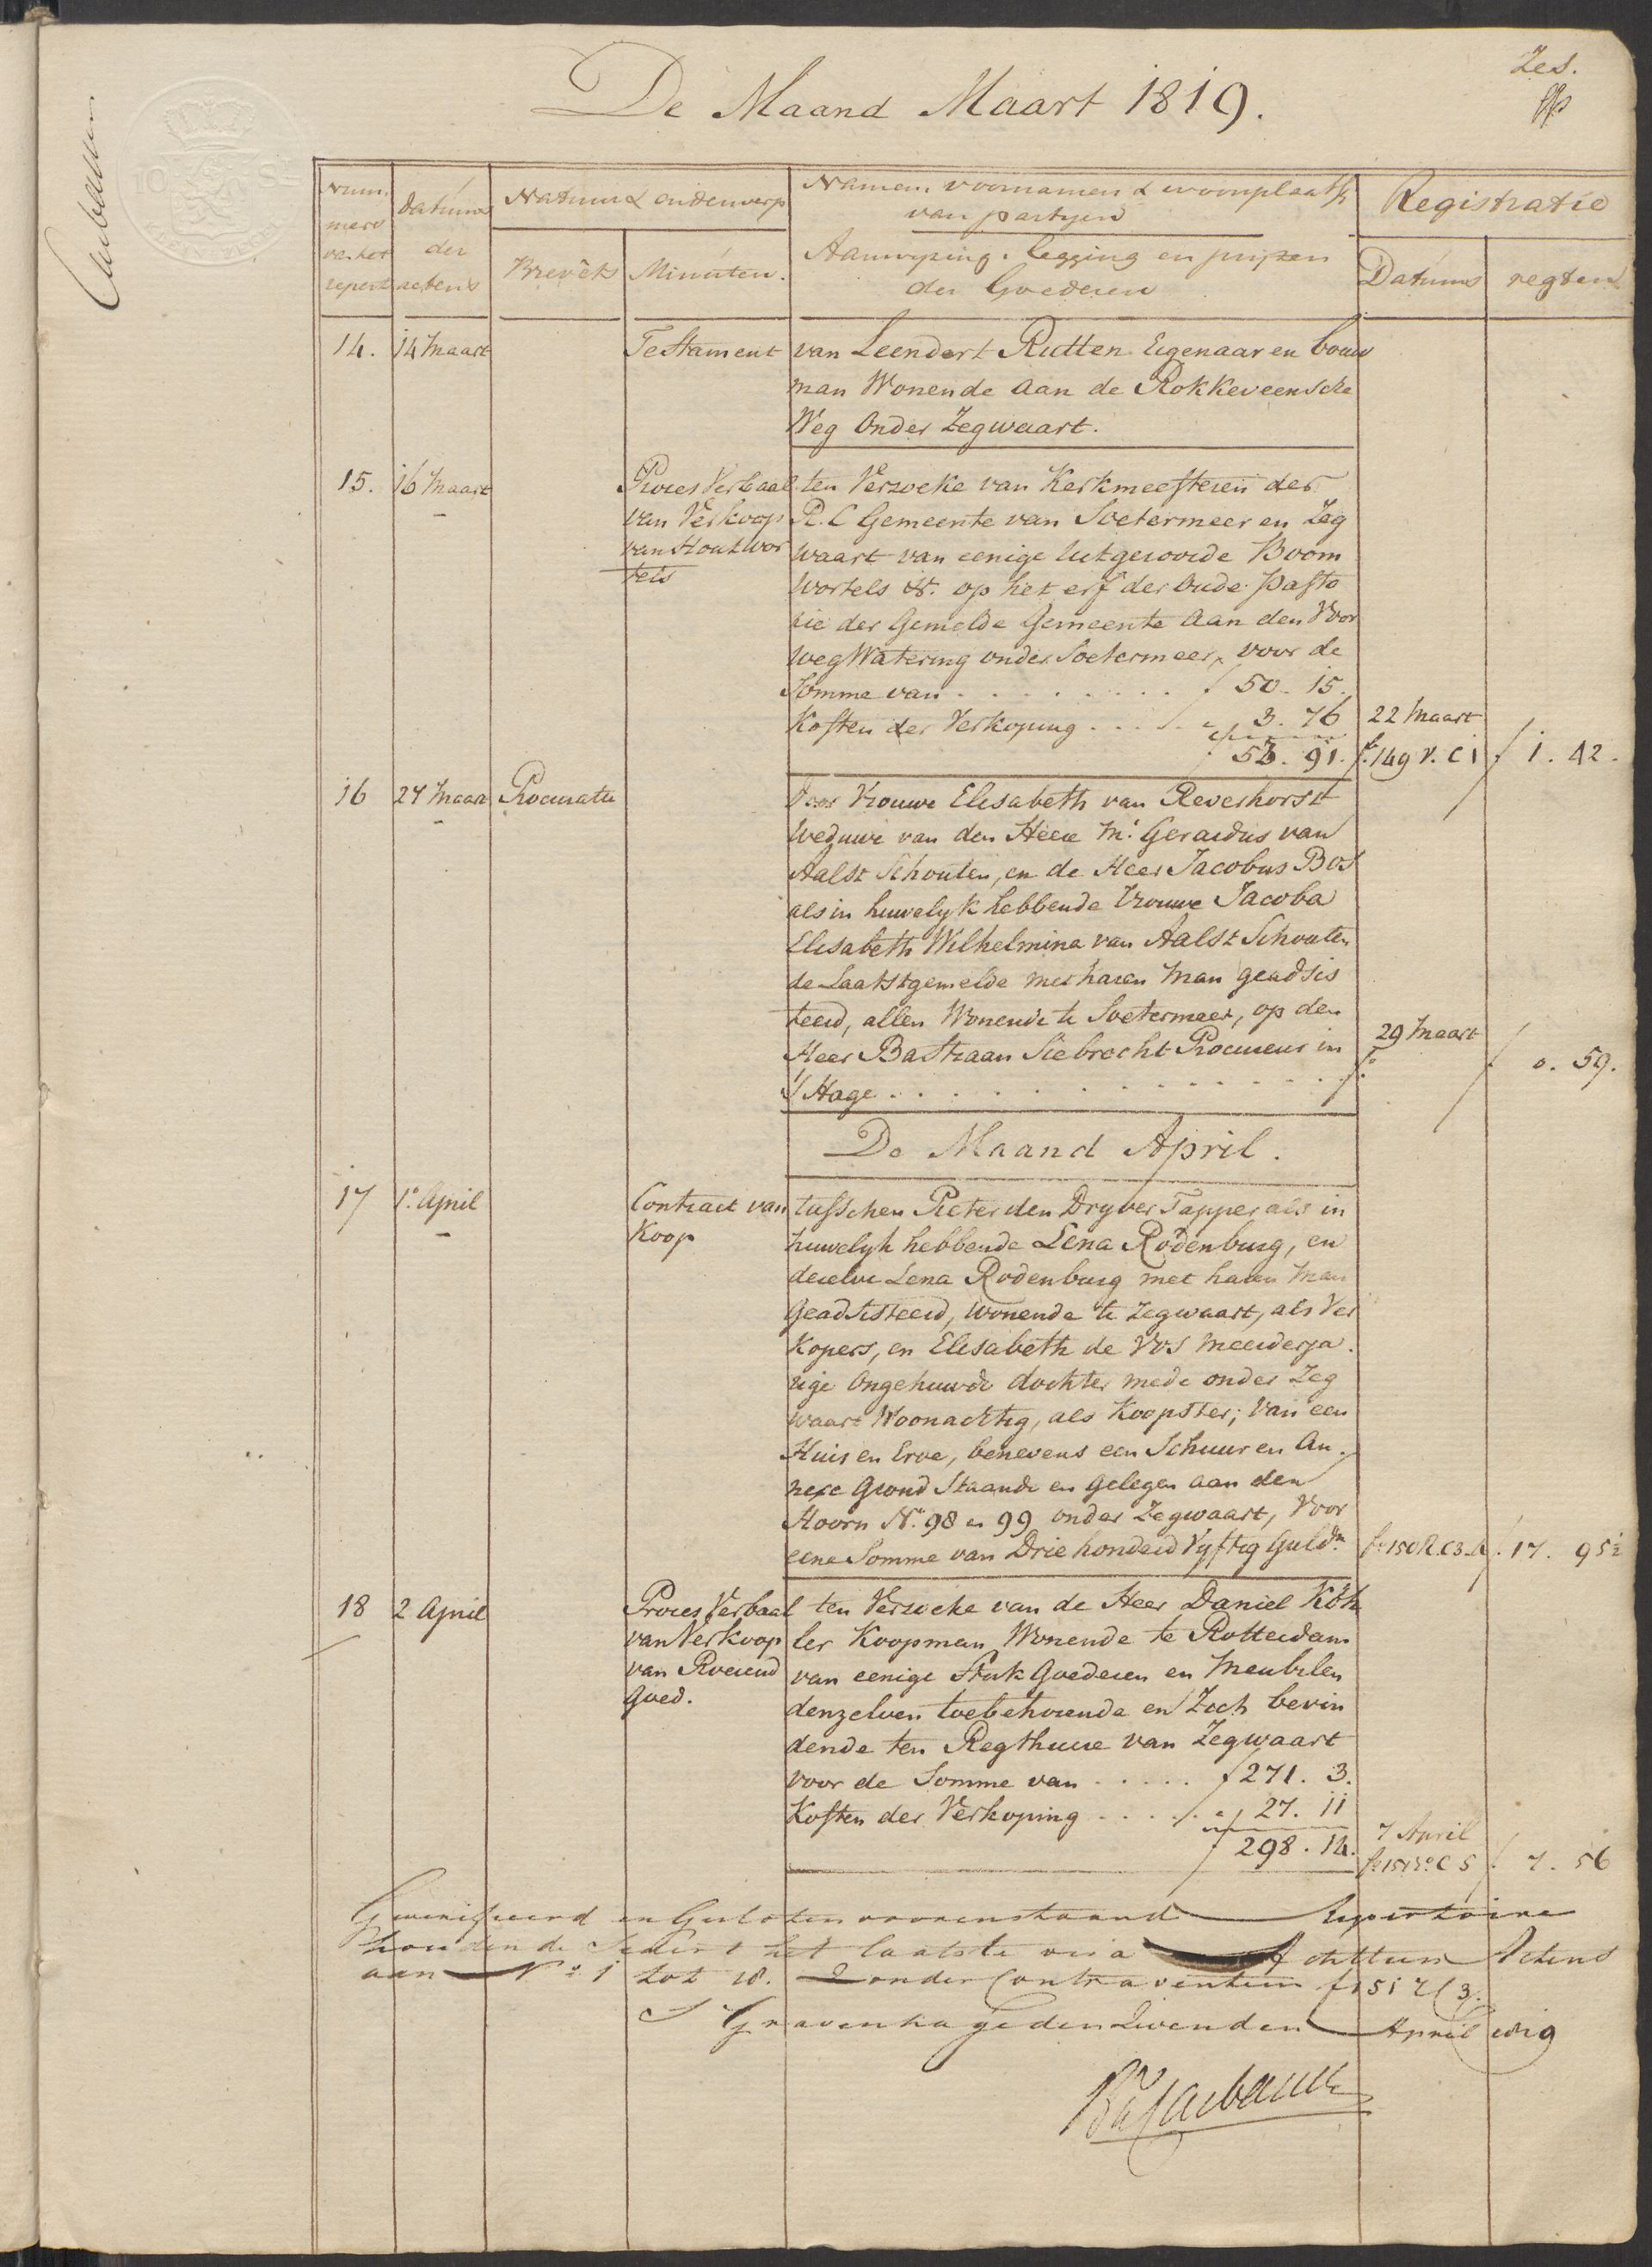 Zes.
De Maand Maart 1819.
Num
mers
van het
repert
datums
der
actens
Natuur & onderwerp
Brevêts
Minúten.
Namen, voornamen & woonplaats
van partyen
Aanwyzing, legging en pryzen
der Goederen
Registratie
Datums
regten
14. 14 Maart Testament van Leendert Rutten Eigenaar en bouw
man Wonende aan de Rokkeveensche
Weg Onder Zegwaart.
15. 16 Maart Proces Verbaal ten Verzoeke van Kerkmeesteren der
van Verkoop R. C Gemeente van Soetermeer en Zeg
van Houtwor waart van eenige uitgeroode Boom
tels wortels &. op het erf der Oude Pasto
rie der Gemelde Gemeente aan den Voor
weg Watering onder Soetermeer, voor de
Somme van . . . . . . . . f 50. 15.
Kosten der Verkoping . . . . . „ 3. 76 22 Maart
f 53. 91. fo. 149 V. C 1 f 1. 42.
16 27 Maart Procuratie Door Vrouwe Elisabeth van Reverhorst
Weduwe van den Heere Mr. Gerardus van
Aalst Schouten, en de Heer Jacobus Bos
als in huwelyk hebbende Vrouwe Jacoba
Elisabeth Wilhelmina van Aalst Schouten
de Laatstgemelde met haren Man geadsis
teerd, allen Wonende te Soetermeer, op den
Heer Bastiaan Siebrecht Procureur in 29 Maart
's Hage . . . . . . . . . . . fo f 0. 59.
De Maand April.
17 1e. April Contract van tusschen Pieter den Dryver Tapper als in
Koop huwelyk hebbende Lena Rodenburg, en
dezelve Lena Rodenburg met haren Man
Geadsisteerd, wonende te Zegwaart, als Ver
kopers, en Elisabeth de Vos meerderja
rige Ongehuwde dochter mede onder Zeg
waart Woonachtig, als Koopster; van een
Huis en Erve, benevens een Schuur en An
nexe Grond Staande en Gelegen aan den
Hoorn No. 98 en 99 onder Zegwaart, Voor
eene Somme van Drie honderd Vyftig Guldn. fo 150 R. C3 f. 17. 95½
18 2 April Proces Verbaal ten Verzoeke van de Heer Daniel Köh
van Verkoop ler Koopman Wonende te Rotterdam
van Roerend van eenige Stuk Goederen en Meubelen
Goed. denzelven toebehorende en Zich bevin
dende ten Regthuise van Zegwaart
voor de Somme van . . . . . f 271. 3.
Kosten der Verkoping . . . . . „ 27. 11
f 298. 14. 7 April
fo 151 Vo C 5 f 7. 56
Geverifieerd en Gesloten voorenstaand Repertoire
houdende Sedert het laatste visa Achttien Actens
aan No 1 tot 18. Zonder Contraventien
S Gravenhage den Twenden April 1819